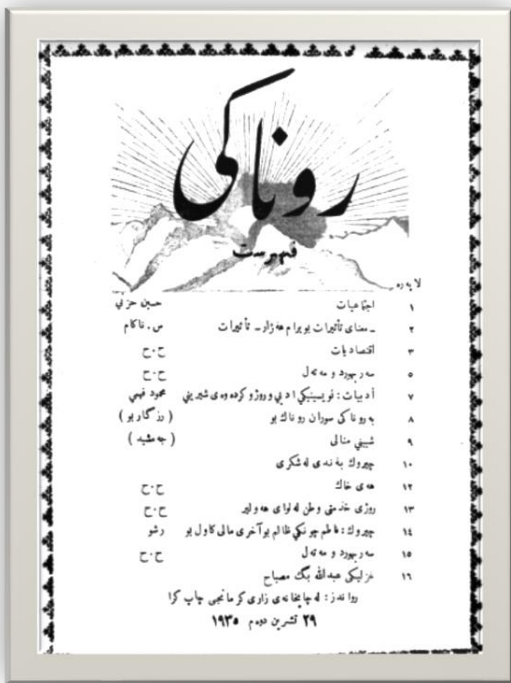 روناکی
فهرست
لاپەرە
١ اجتماعیات حسین حزنی
٢ ـ معنای تأثیرات بویرام هەژار ـ تأثیرات س . ناکام
٣ اقتصادیات ح . ح
٥ سەربهورد و مەتەل ح . ح
٧ أدبیات : نویسینیکی ادبی و روژو کردەوەی شیرینی محمود فهمی
٨ بە روناکی سوران روناك بو ( رزگار بو )
٩ شینی منالی ( جەمشید )
١٠ چیروك بەندی لەشکری
١٢ هەی خاك ح . ح
١٣ روژی خدمتی وطن لە لوای هەولیر ح . ح
١٤ چیروك : فاطم چونکی ظالم بو آخری مالی کاول بو رشو
١٥ سەربهورد و مەتەل ح . ح
١٦ غزلیکی عبدالله بگ مصباح
رواندز : لە چاپخانەی زاری کرمانجی چاپ کرا
٢٩ تشرین دوەم ١٩٣٥